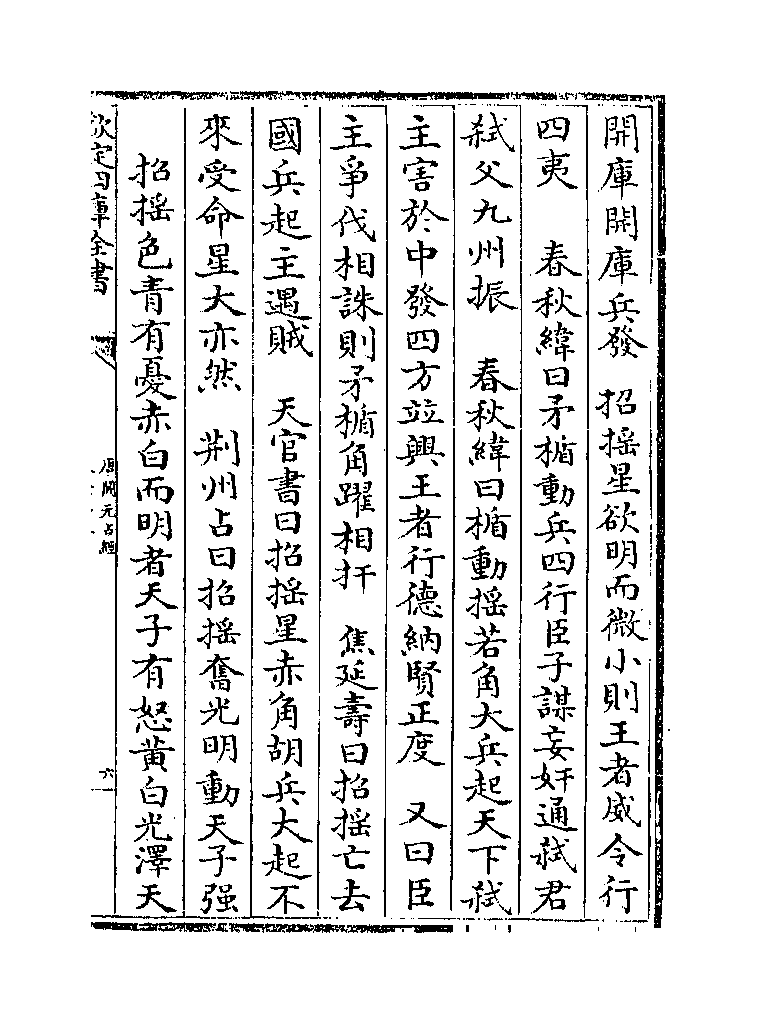 開庫開庫兵發　招搖星欲明而微小則王者威令行
四夷　春秋緯曰矛楯動兵四行臣子謀妄奸通弑君
弑父九州振　春秋緯曰楯動揺若角大兵起天下弑
主害於中發四方竝興王者行德納賢正度　又曰臣
主爭伐相誅則矛楯角躍相扞　焦延壽曰招揺亡去
國兵起主遇賊　天官書曰招揺星赤角胡兵大起不
來受命星大亦然　荆州占曰招揺奮光明動天子强
招揺色青有憂赤白而明者天子有怒黄白光澤天
欽定四庫全書
唐開元占經
六